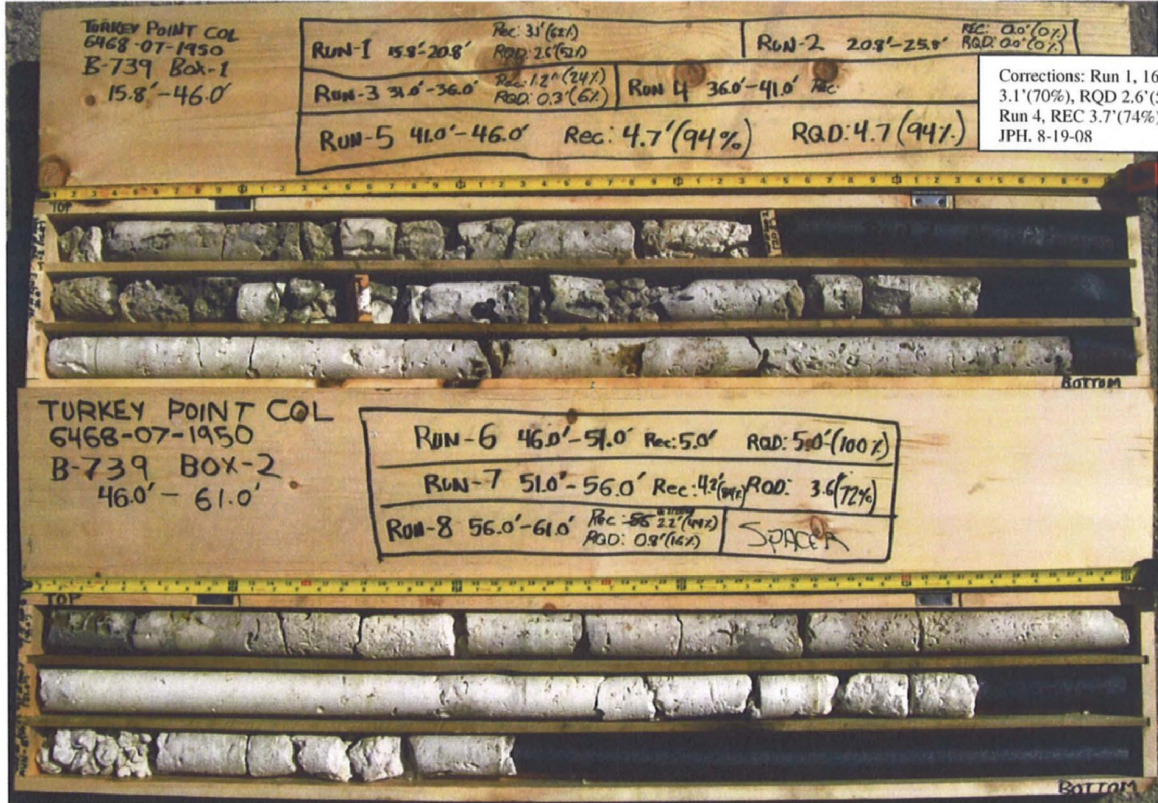 TURKEY POINT COL
6468-07-1950
B-739 Box-1
15.8'-46.0'
RUN-1 15.8'-20.8' Rec: 3.1'(62%)
RQD: 2.6'(52%)
RUN-2 20.8'-25.8' REC: 0.0'(0%)
RQD: 0.0'(0%)
RUN-3 31.0'-36.0' Rec: 1.2'(24%)
RQD: 0.3'(6%)
RUN 4 36.0'-41.0' Rec:
RUN-5 41.0'-46.0' Rec: 4.7'(94%) RQD: 4.7(94%)
Corrections: Run 1, 16
3.1'(70%), RQD 2.6'(
Run 4, REC 3.7'(74%)
JPH. 8-19-08
TOP
BOTTOM
TURKEY POINT COL
6468-07-1950
B-739 BOX-2
46.0'-61.0'
RUN-6 46.0'-51.0' Rec: 5.0' RQD: 5.0'(100%)
RUN-7 51.0'-56.0' Rec: 4.2'(84%) RQD: 3.6'(72%)
RUN-8 56.0'-61.0' Rec: 2.2'(44%)
RQD: 0.8'(16%)
SPACER
TOP
BOTTOM